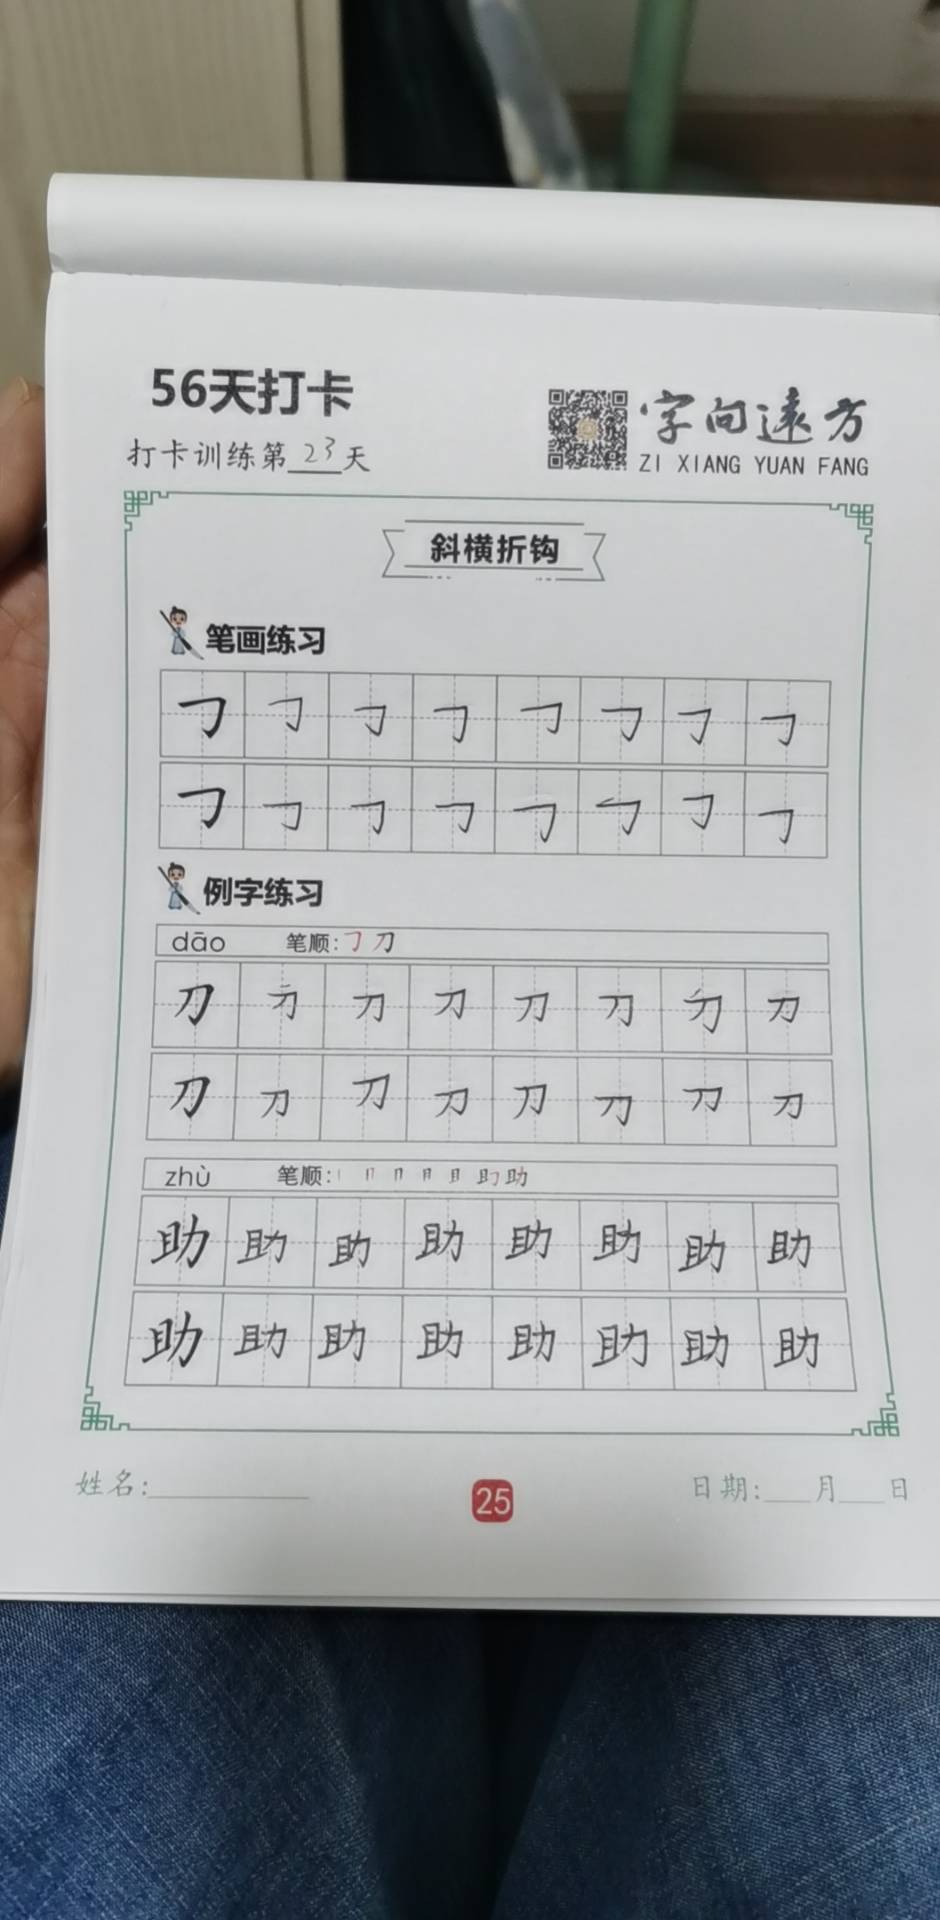 56天打卡
打卡训练第23天
字向遠方
ZI XIANG YUAN FANG
斜横折钩
笔画练习
㇆ ㇆ ㇆ ㇆ ㇆ ㇆ ㇆ ㇆
㇆ ㇆ ㇆ ㇆ ㇆ ㇆ ㇆ ㇆
例字练习
dāo 笔顺:㇆ 刀
刀 刀 刀 刀 刀 刀 刀 刀
刀 刀 刀 刀 刀 刀 刀 刀
zhù 笔顺:丨 冂 冂 月 且 助
助 助 助 助 助 助 助 助
助 助 助 助 助 助 助 助
姓名:
25
日期:___月___日